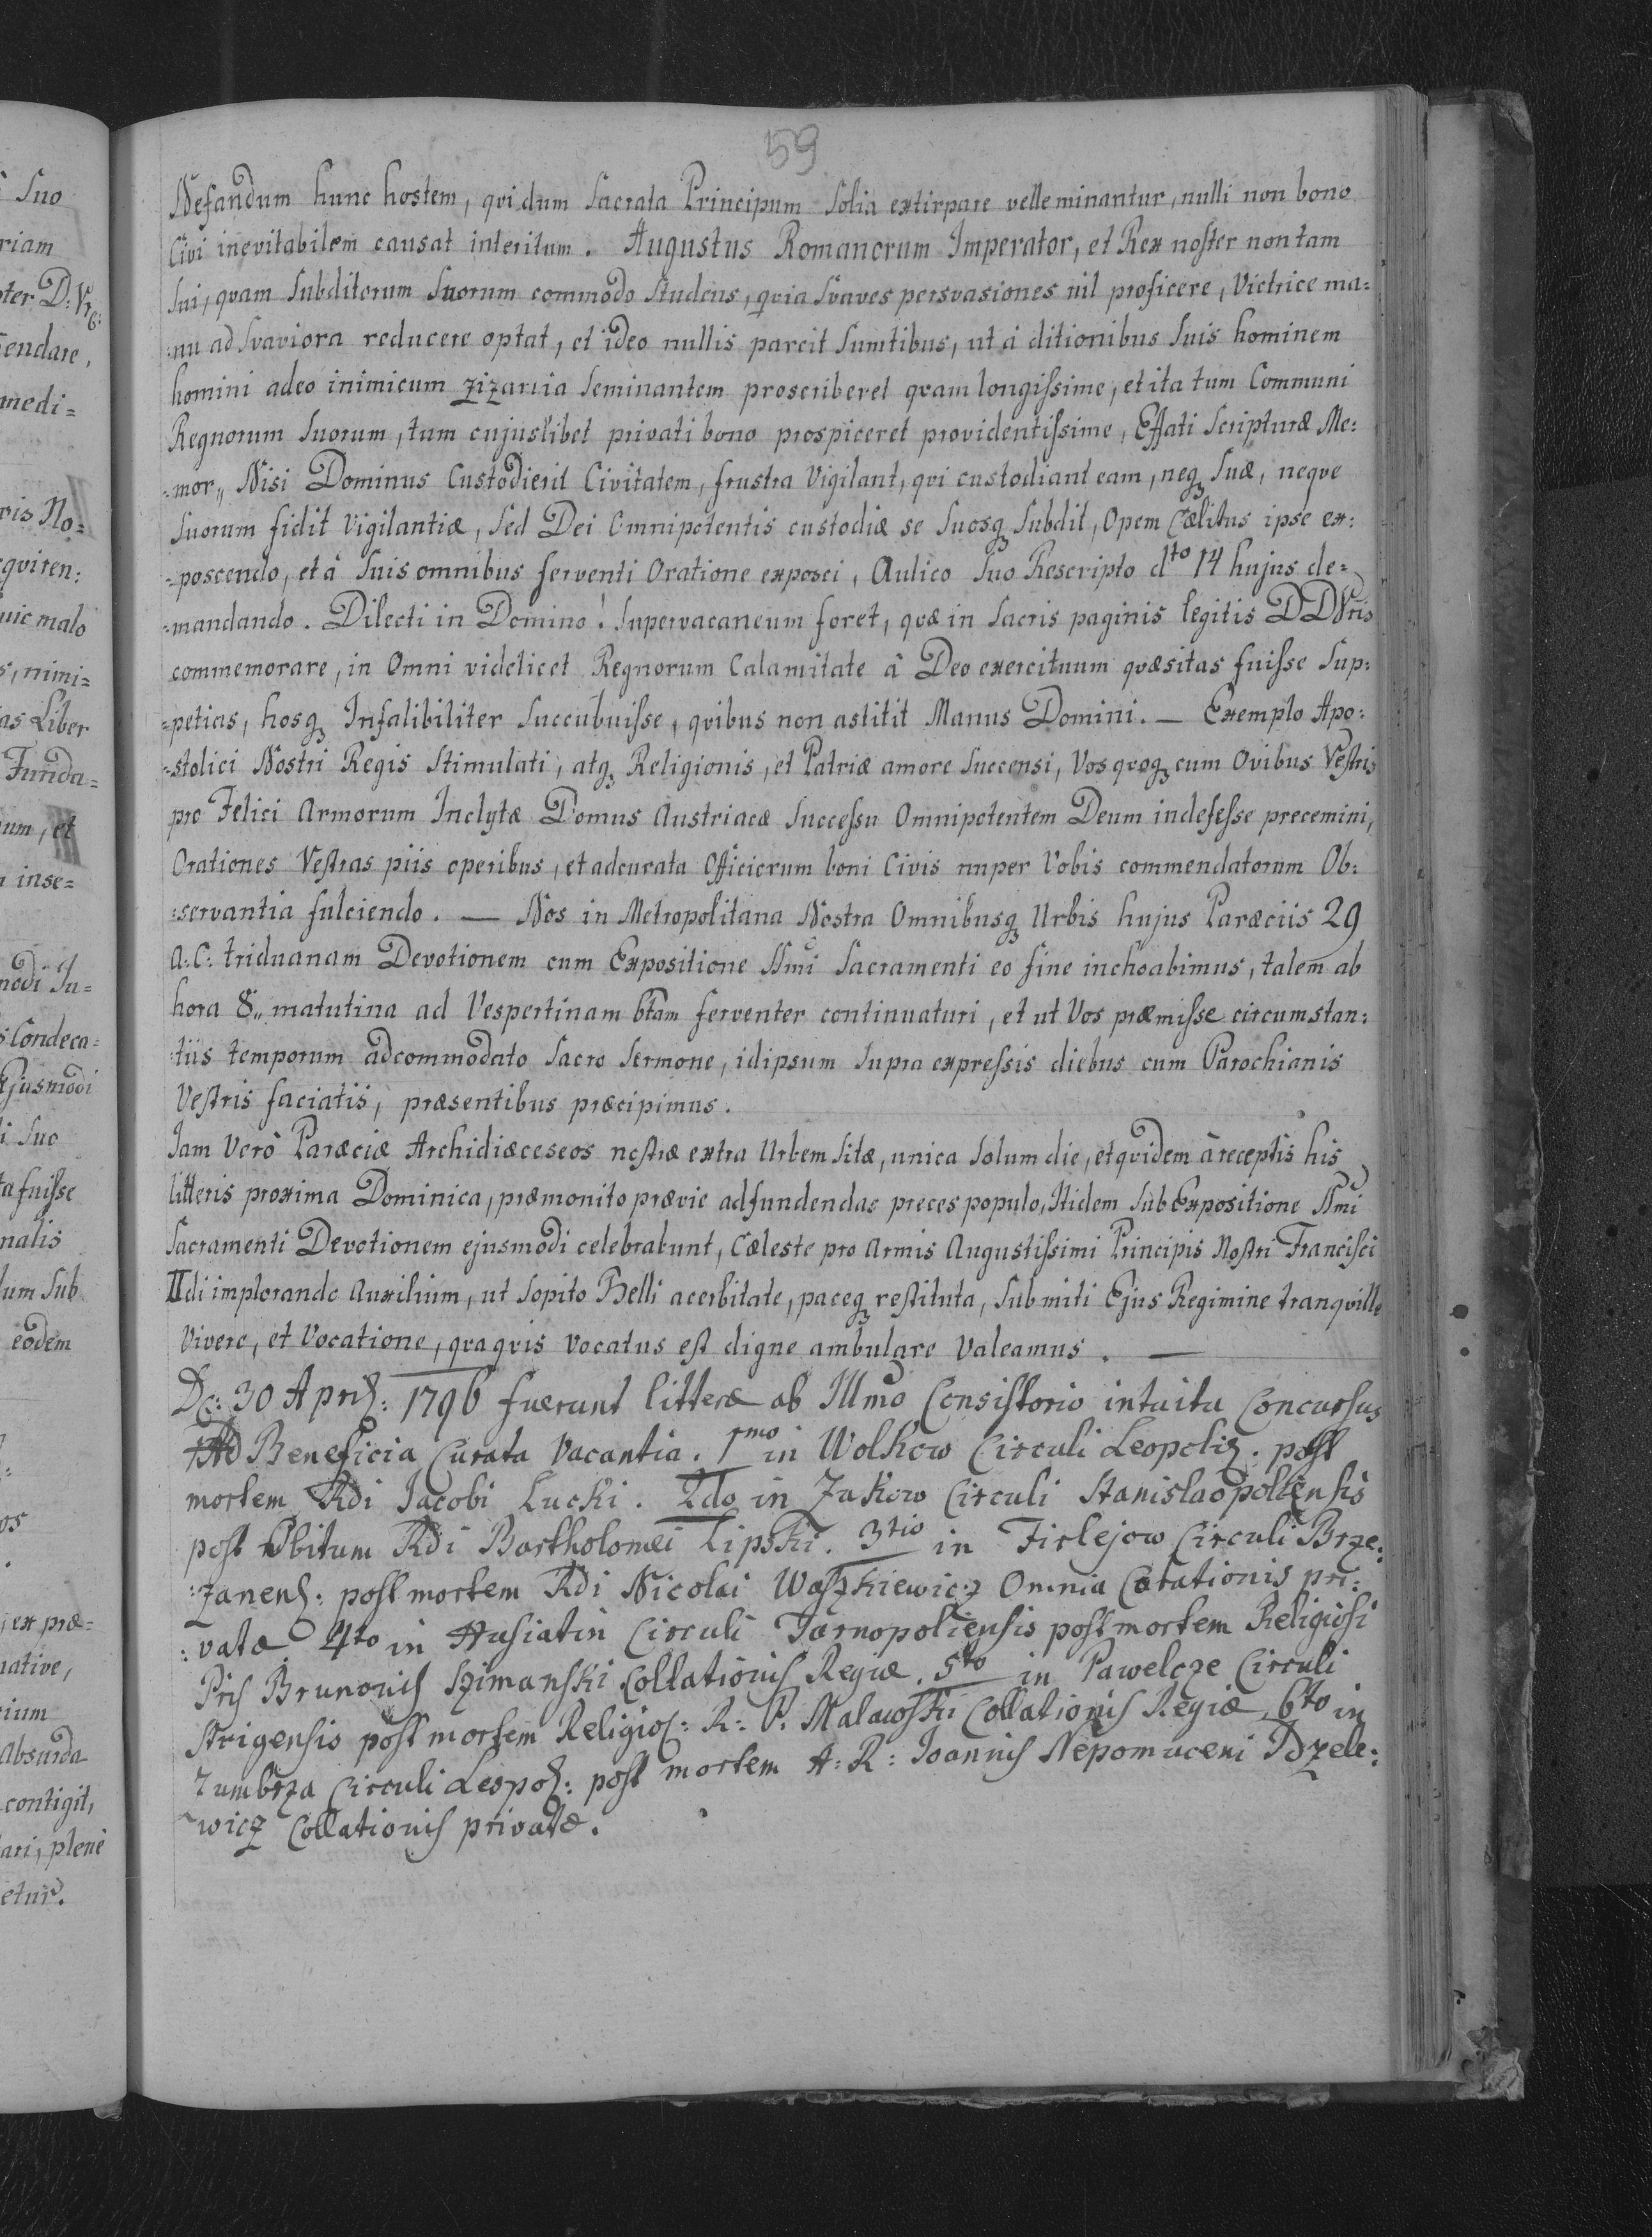 59
Nefandum hunc hostem, qvi dum Sacrata Principum Solia extirpare velle minantur, nulli non bono
Civi inevitabilem causat interitum. Augustus Romanorum Imperator, et Rex noster non tam
Sui, qvam Subditorum Suorum commodo Studens, qvia Svaves persvasiones nil proficere, Victrice ma=
=nu ad Svaviora reducere optat, et ideo nullis parcit Sumtibus, ut à ditionibus Suis hominem
homini adeo inimicum zizania Seminantem proscriberet qvam longissime, et ita tum Communi
Regnorum Suorum, tum cujuslibet privati bono prospiceret providentissime, Effati Scripturæ Me=
=mor,, Nisi Dominus Custodierit Civitatem, frustra Vigilant, qvi custodiant eam, neqꝫ Suæ, neqve
Suorum fidit Vigilantiæ, Sed Dei Omnipotentis custodiæ se Suosqꝫ Subdit, Opem Cælitus ipse ex=
=poscendo, et à Suis omnibus ferventi Oratione exposci, Aulico Suo Rescripto dto 14 hujus de=
=mandando. Dilecti in Domino! Supervacaneum foret, qvæ in Sacris paginis legitis DDVris
commemorare, in Omni videlicet Regnorum Calamitate à Deo exercituum qvæsitas fuisse Sup=
=petias, hosqꝫ Infalibiliter Succubuisse, qvibus non astitit Manus Domini. — Exemplo Apo=
=stolici Nostri Regis Stimulati, atqꝫ Religionis, et Patriæ amore Succensi, Vos qvoqꝫ cum Ovibus Vestris
pro Felici Armorum Inclytæ Domus Austriacæ Successu Omnipotentem Deum indefesse precemini,
Orationes Vestras piis operibus, et adcurata Officiorum boni Civis nuper Vobis commendatorum Ob=
=servantia fulciendo. — Nos in Metropolitana Nostra Omnibusqꝫ Urbis hujus Paræciis 29
a: c: triduanam Devotionem cum Expositione SSmi Sacramenti eo fine inchoabimus, talem ab
hora 8,, matutina ad Vespertinam 6tam ferventer continuaturi, et ut Vos præmisse circumstan=
=tiis temporum adcommodato Sacro Sermone, idipsum Supra expressis diebus cum Parochianis
Vestris faciatis, præsentibus præcipimus.
Iam Verò Paræciæ Archidiæceseos nostræ extra Urbem Sitæ, unica Solum die, et qvidem à receptis his
litteris proxima Dominica, præmonito prævie ad fundendas preces populo, Itidem Sub Expositione SSmi
Sacramenti Devotionem ejusmodi celebrabunt, Cæleste pro Armis Augustissimi Principis Nostri Francisci
IIdi implorando Auxilium, ut Sopito Belli acerbitate, paceqꝫ restituta, Sub miti Ejus Regimine tranqville
Vivere, et Vocatione, qva qvis vocatus est digne ambulare Valeamus. —
De: 30 April: 1796 fuerunt litteræ ab Illmo Consistorio intuitu Concursus
Ad Beneficia Curata Vacantia. 1mo in Wolkow Circuli Leopolis. post
mortem Rdi Jacobi Lucki. 2do in Zukow Circuli Stanislaopoliensis
post Obitum Rdi Bartholomei Lipski. 3tio in Firlejow Circuli Brze=
=zanens: post mortem Rdi Nicolai Waszkiewicz Omnia Colationis pri=
=vatæ 4to in Husiatin Circuli Tarnopoliensis post mortem Religiosi
Pris Brunonis Szimanski Collationis Regiæ. 5to in Pawelcze Circuli
Strigensis post mortem Religios: R: P. Malawski Collationis Regiæ, 6to in
Zumbrza Circuli Leopol: post mortem A: R: Joannis Nepomuceni Idzele=
=wicz Collationis privatæ.